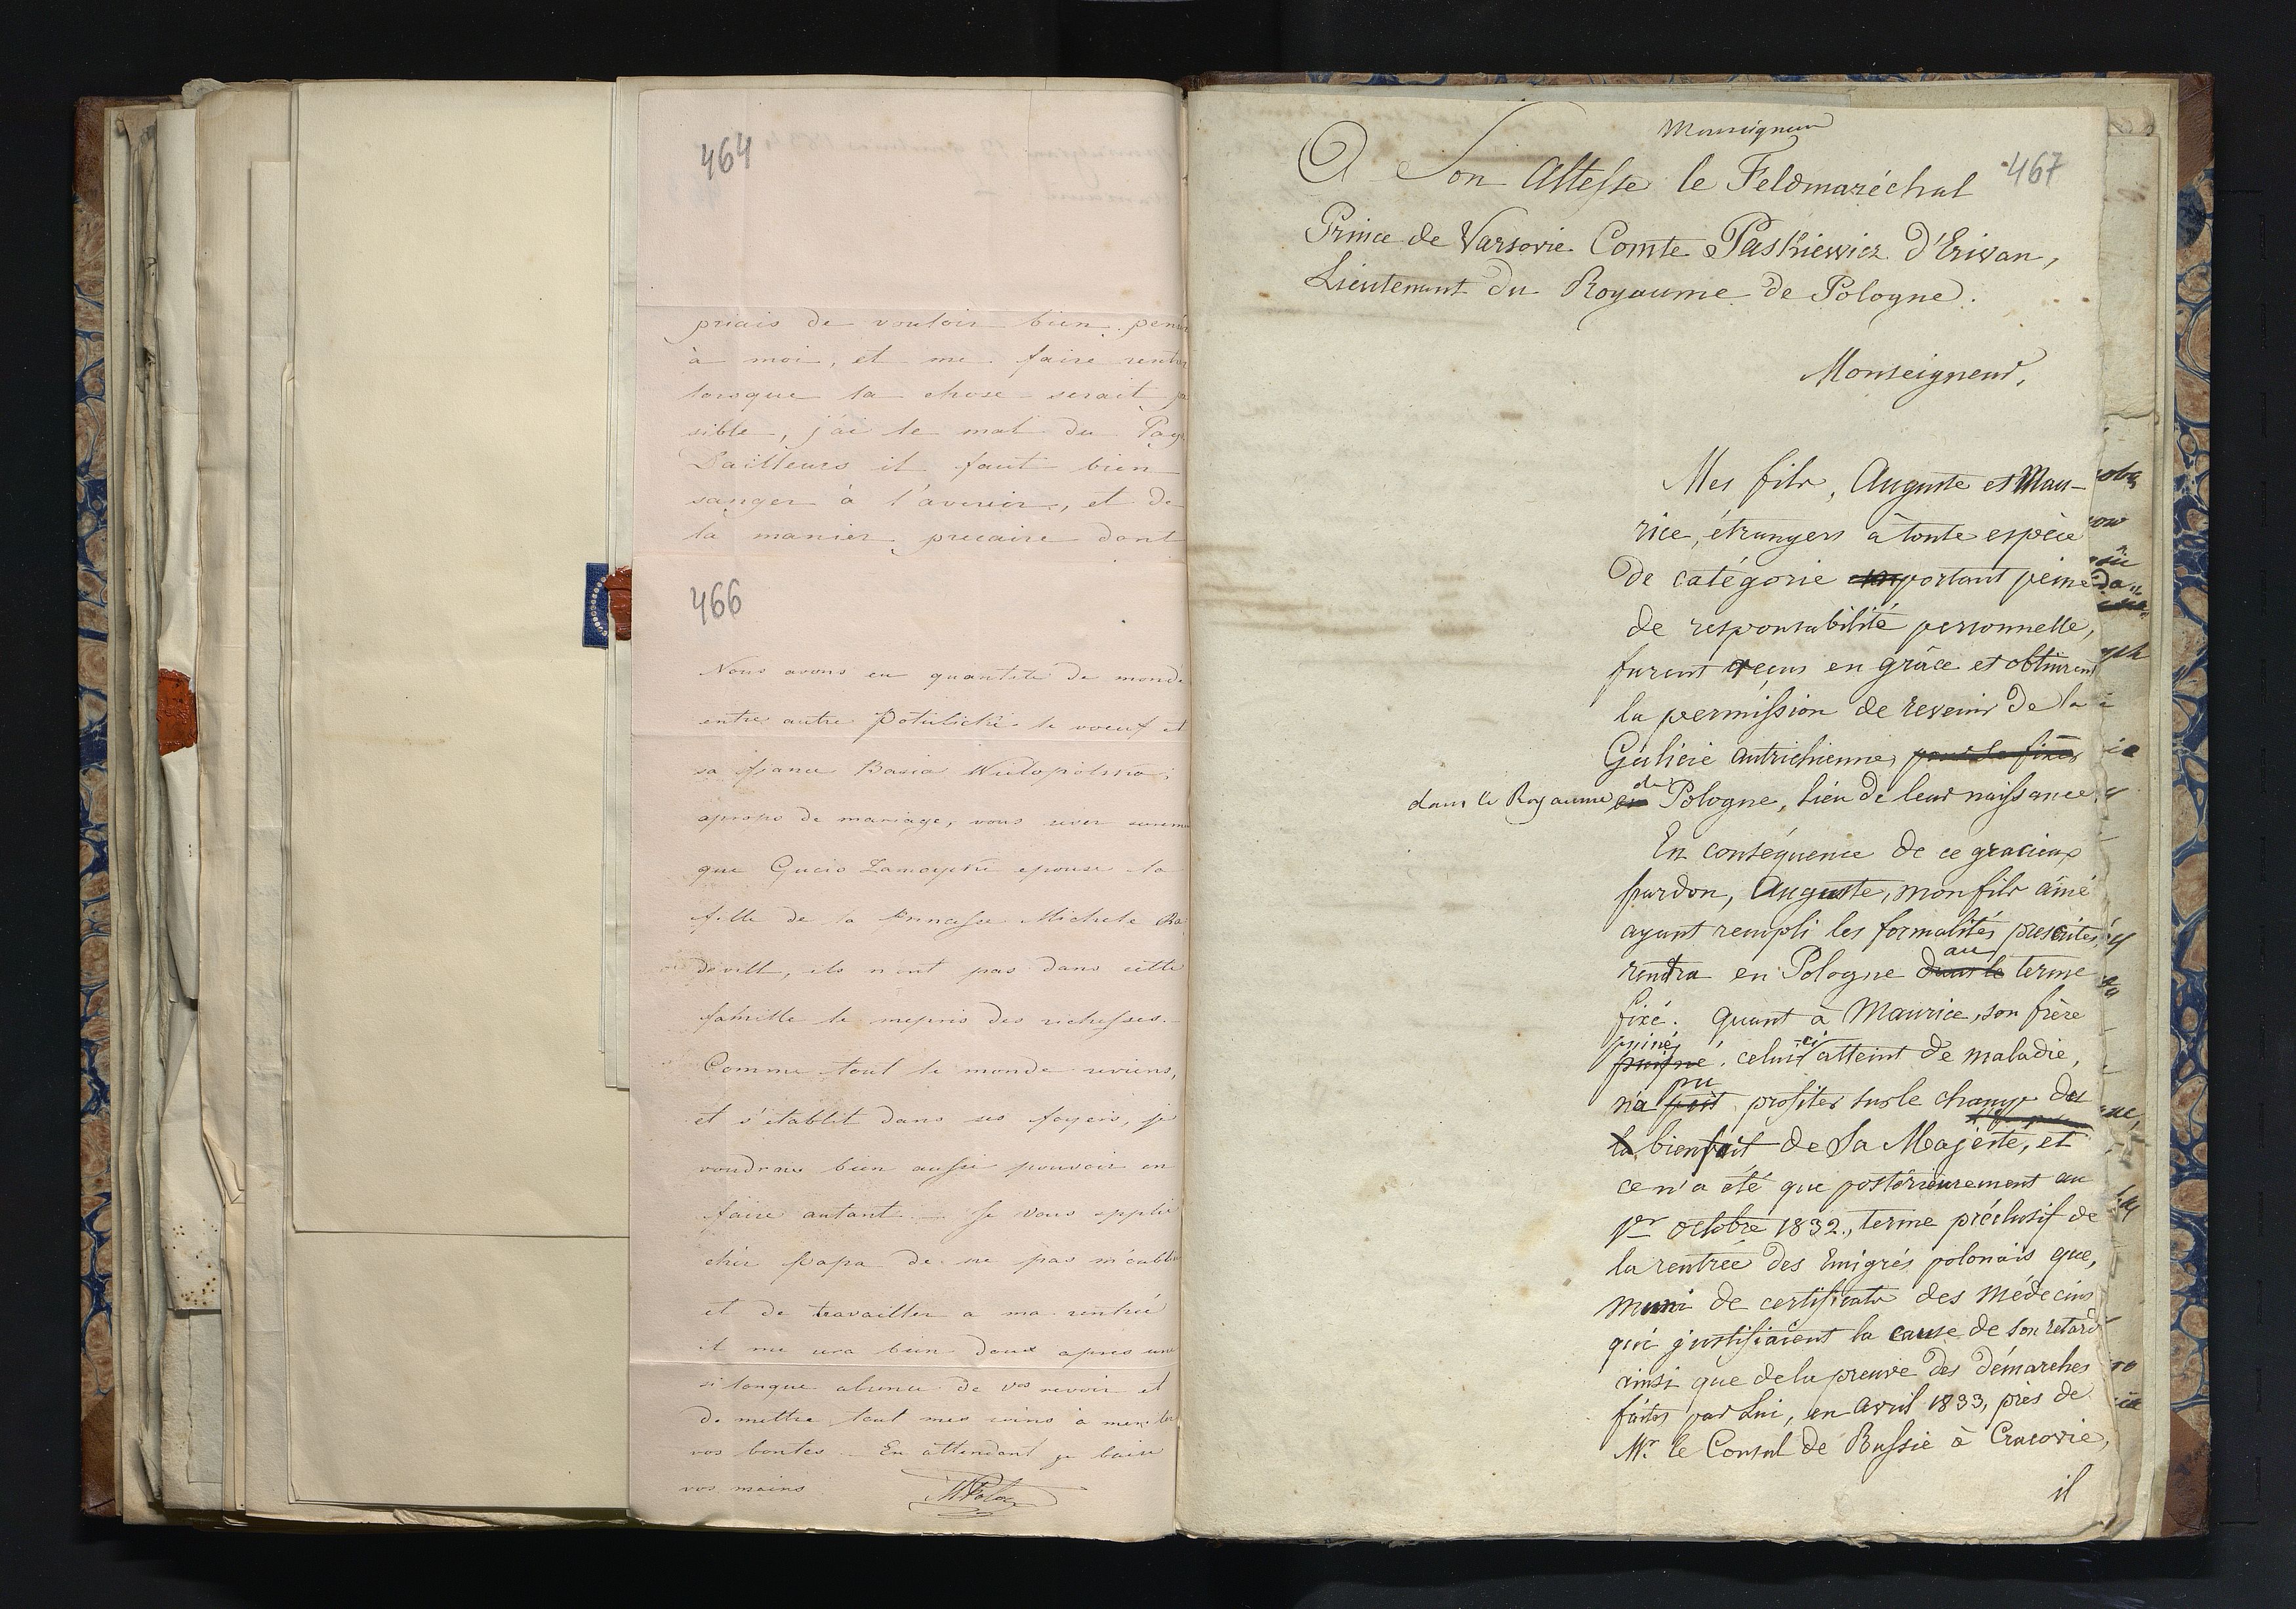 464
priais de vouloir bien pen
à moi, et me faire rentre
lorsque la chose serait
sible, j'ai le mal du Pay
D'ailleurs il faut bien
songer à l'avenir, et de
la manier precaire dont
466
Nous avons eu quantité de monde
entre autre Potulicki le voeuf et
sa fiance Basia Wielopolska;
apropos de mariage, vous
que Gucio Zamoyski epouse la
fille de la Princesse Michele Ra
divill, ils n'ont pas dans cette
famille le mepris des richesses.
Comme tout le monde reviens,
et s'etablit dans ses foyers, je
voudrais bien aussi pouvoir en
faire autant — Je vous supplie
cher Papa de ne pas m'oublie
et de travailler a ma rentrée
il me sera bien doux apres une
si longue absence de vos revoir et
de mettre tout mes soins à meriter
vos bontes — En attendant je baise
vos mains
467
Monseigneur
A Son Altesse le Feldmaréchal
Prince de Varsovie Comte Paskiewicz d'Erivan,
Lieutenant du Royaume de Pologne.
Monseigneur,
Mes fils, Auguste et Mau-
rice, étrangers à toute espèce
de catégorie portant peine
de responsabilité personnelle,
furent reçus en grâce et obtinrent
la permission de revenir de la
Galicie autrichienne pour se fixer
dans le Royaume en de Pologne, lieu de leur naissance.
En conséquence de ce gracieux
pardon, Auguste, mon fils aîné
ayant rempli les formalités prescrites
rentra en Pologne dans le au terme
fixé. Quant à Maurice, son frère
puiné, celui ci atteint de maladie,
n'a pu profiter sur le champ des
la bienfait de Sa Majesté, et
ce n'a été que postérieurement au
1er octobre 1832., terme préclusif de
la rentrée des Emigrés polonais que,
muni de certificats des médecins
qui justifiaient la cause de son retard
ainsi que de la preuve des démarches
faites par Lui, en Avril 1833, près de
Mr. le Consul de Russie à Cracovie,
il